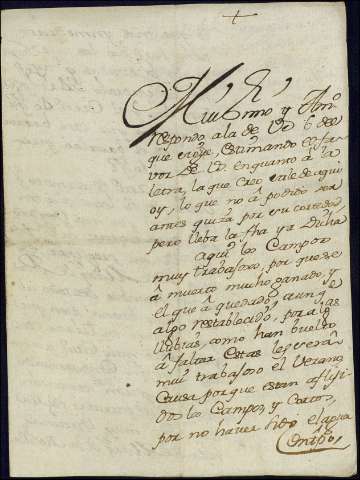 +
Mui S.r mio y Am.o
respondo a la de Vd 6 de el
que corre, estimando el fa-
vor de Vd. en quanto â la
letra, la que creo sale de aqui
oy, lo que no â podido ser
antes quiza por su cortedad
pero lleba la fha ya dicha
Aqui los Campos
muy trabajoso, por que se
â muerto mucho ganado, y
el que â quedado, aunq.e
algo restablecido, por algas
llubias, como han buelto
â faltar estas les verâ
mui trabajoso el Verano
Causa porque estan aflixi
dos los Campos, y Cortos,
por no haver sido el agua
Contpo,